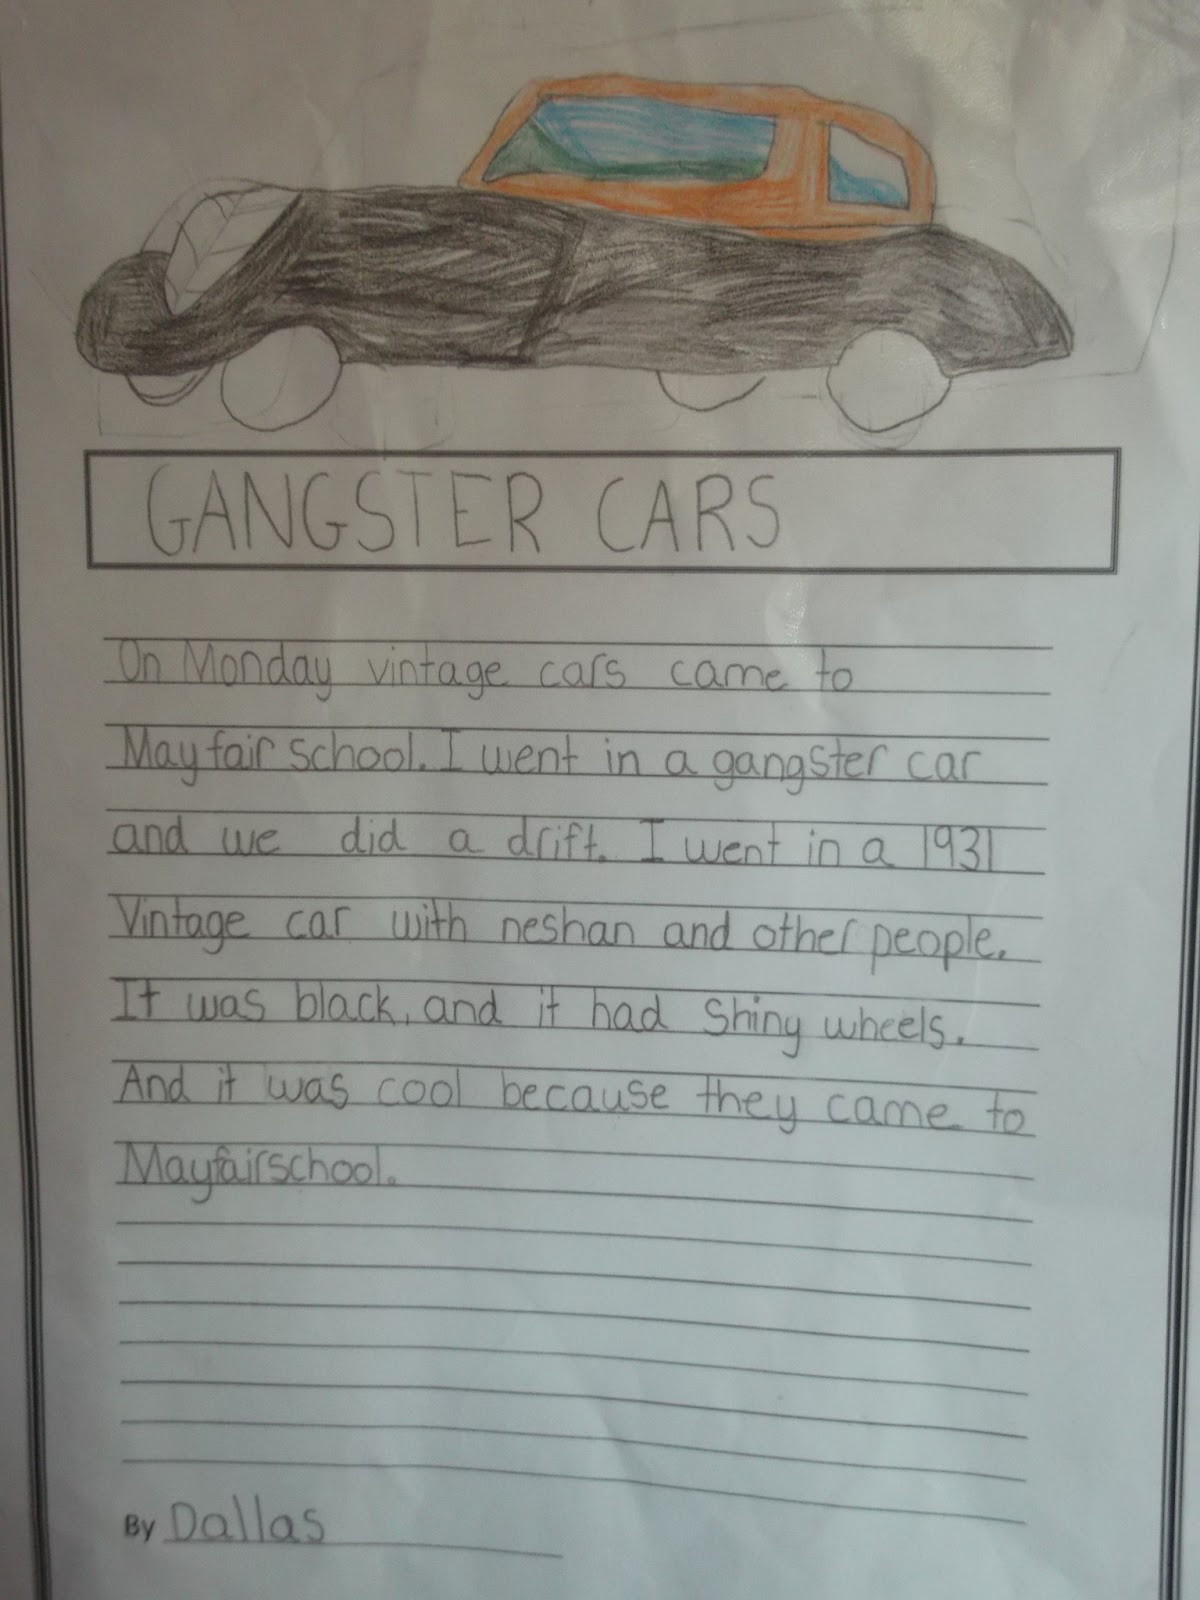 GANGSTER CARS
On Monday vintage cars came to
Mayfair school. I went in a gangster car
and we did a drift. I went in a 1931
Vintage car with neshan and other people.
It was black, and it had Shiny wheels.
And it was cool because they came to
Mayfairschool.
By Dallas